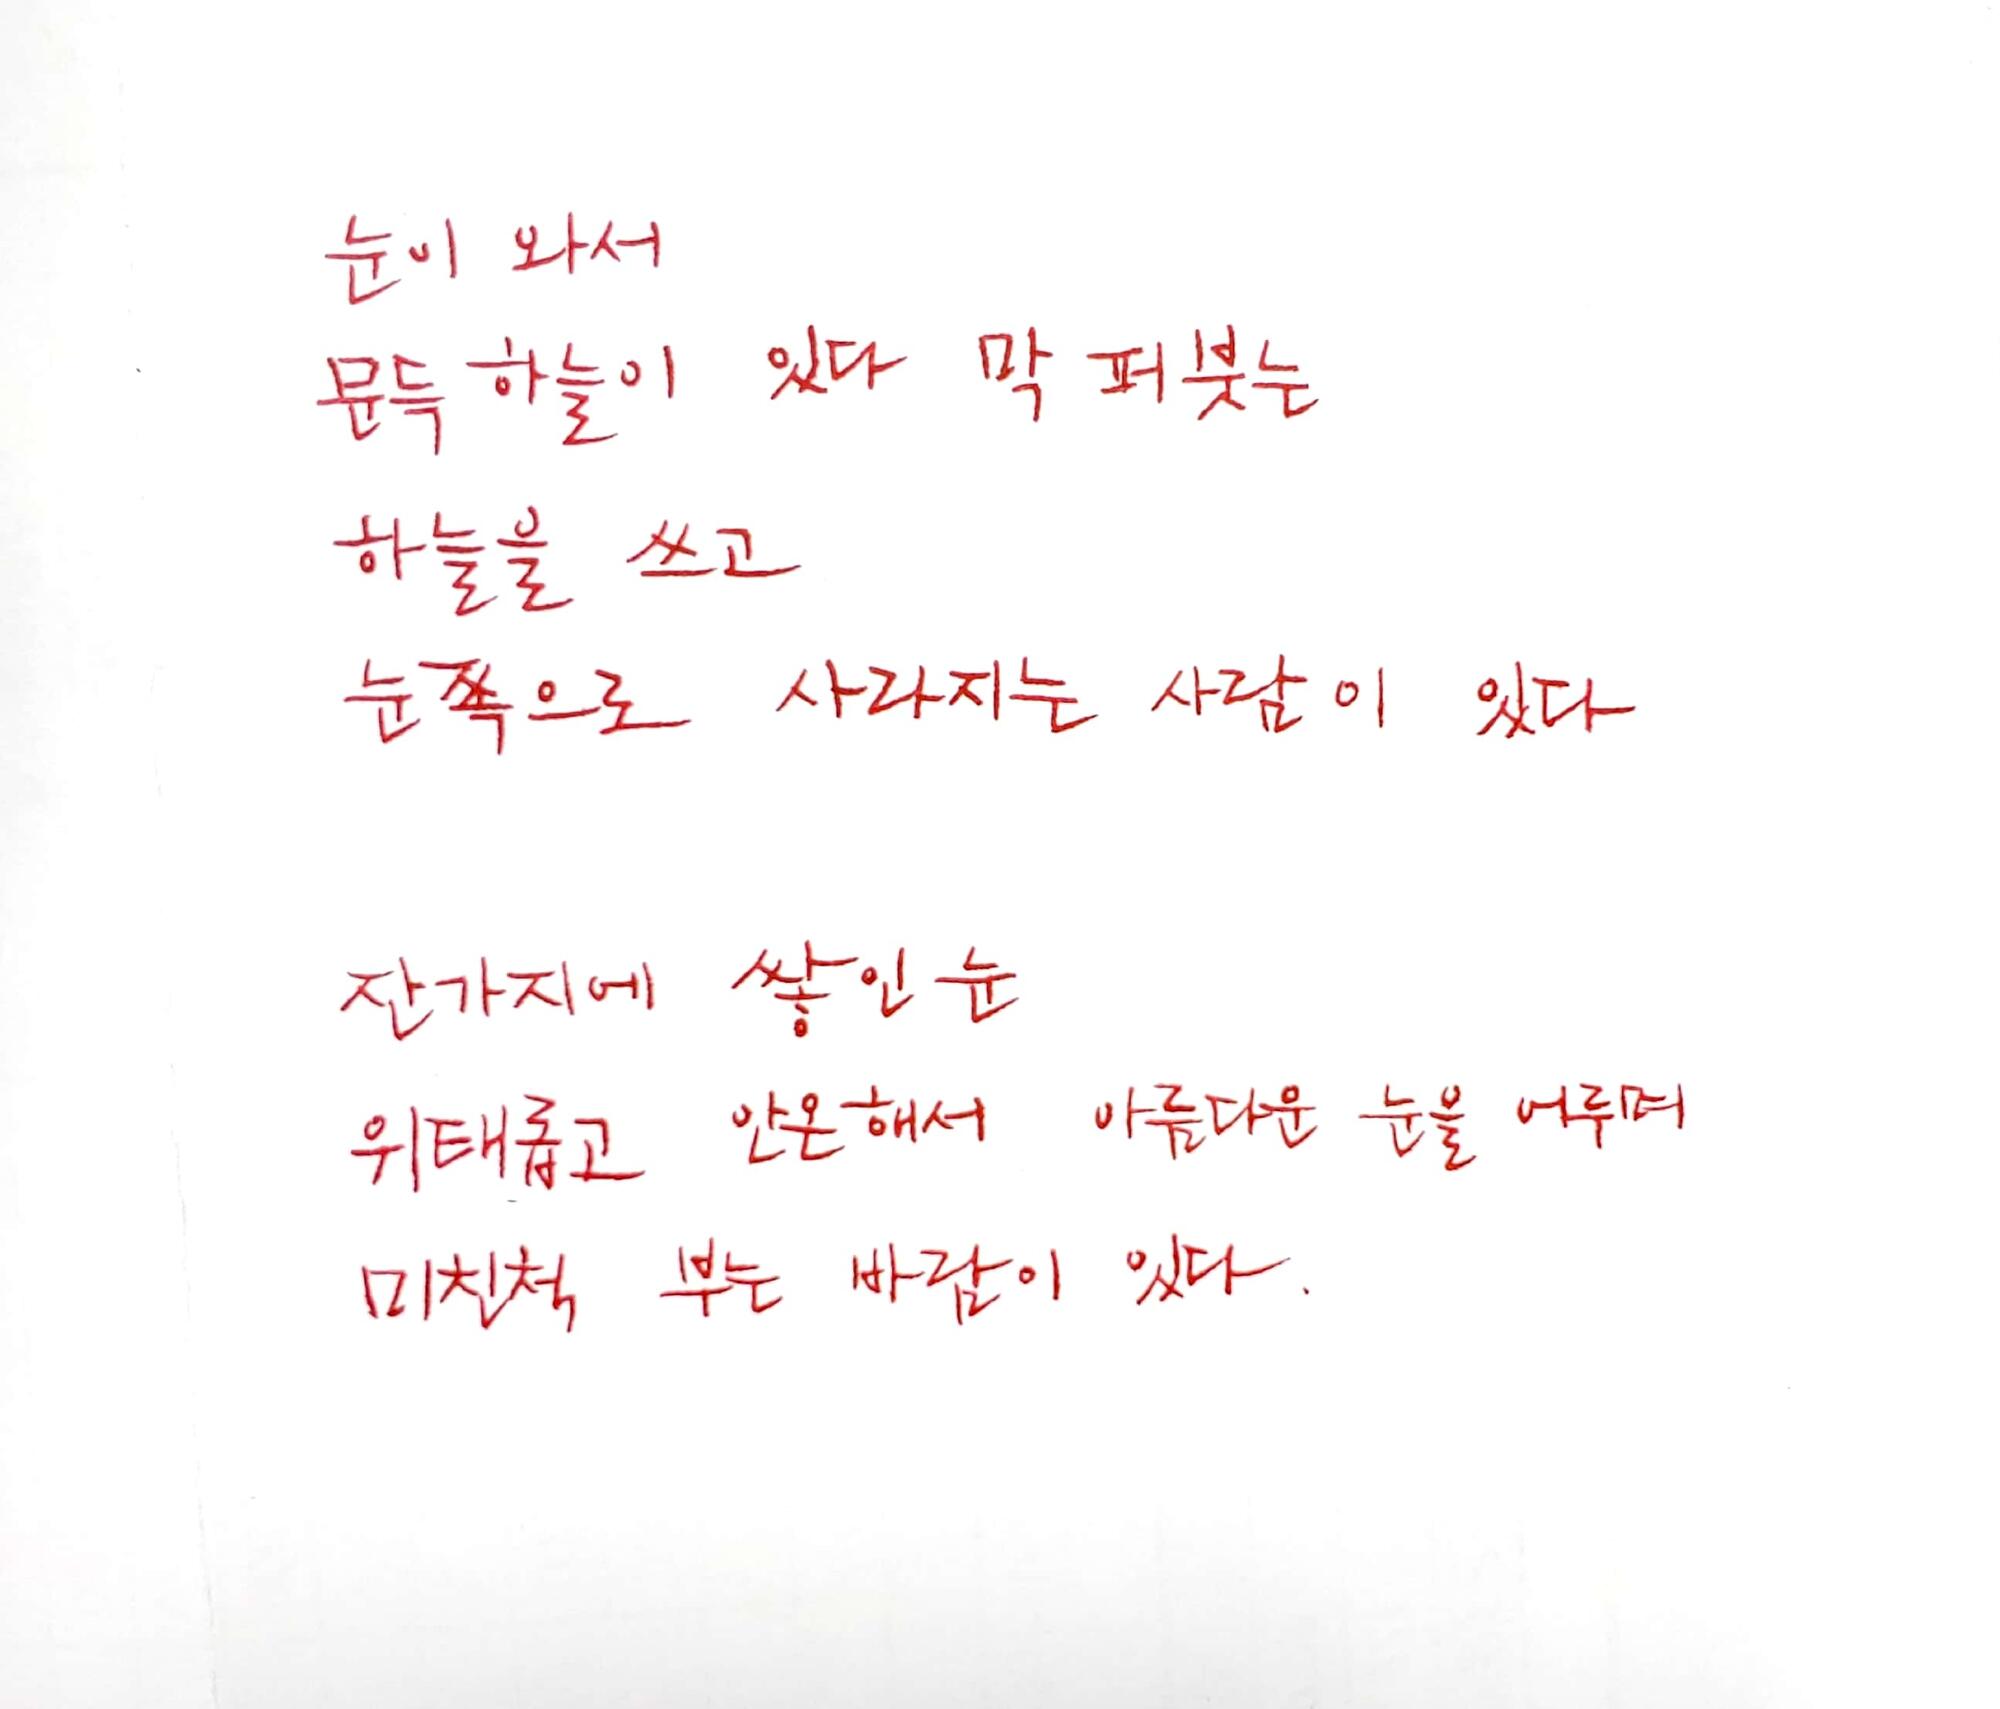 눈이 와서
문득 하늘이 있다 막 퍼붓는
하늘을 쓰고
눈쪽으로 사라지는 사람이 있다
잔가지에 쌓인 눈
위태롭고 안온해서 아름다운 눈을 어루며
미친척 부는 바람이 있다.